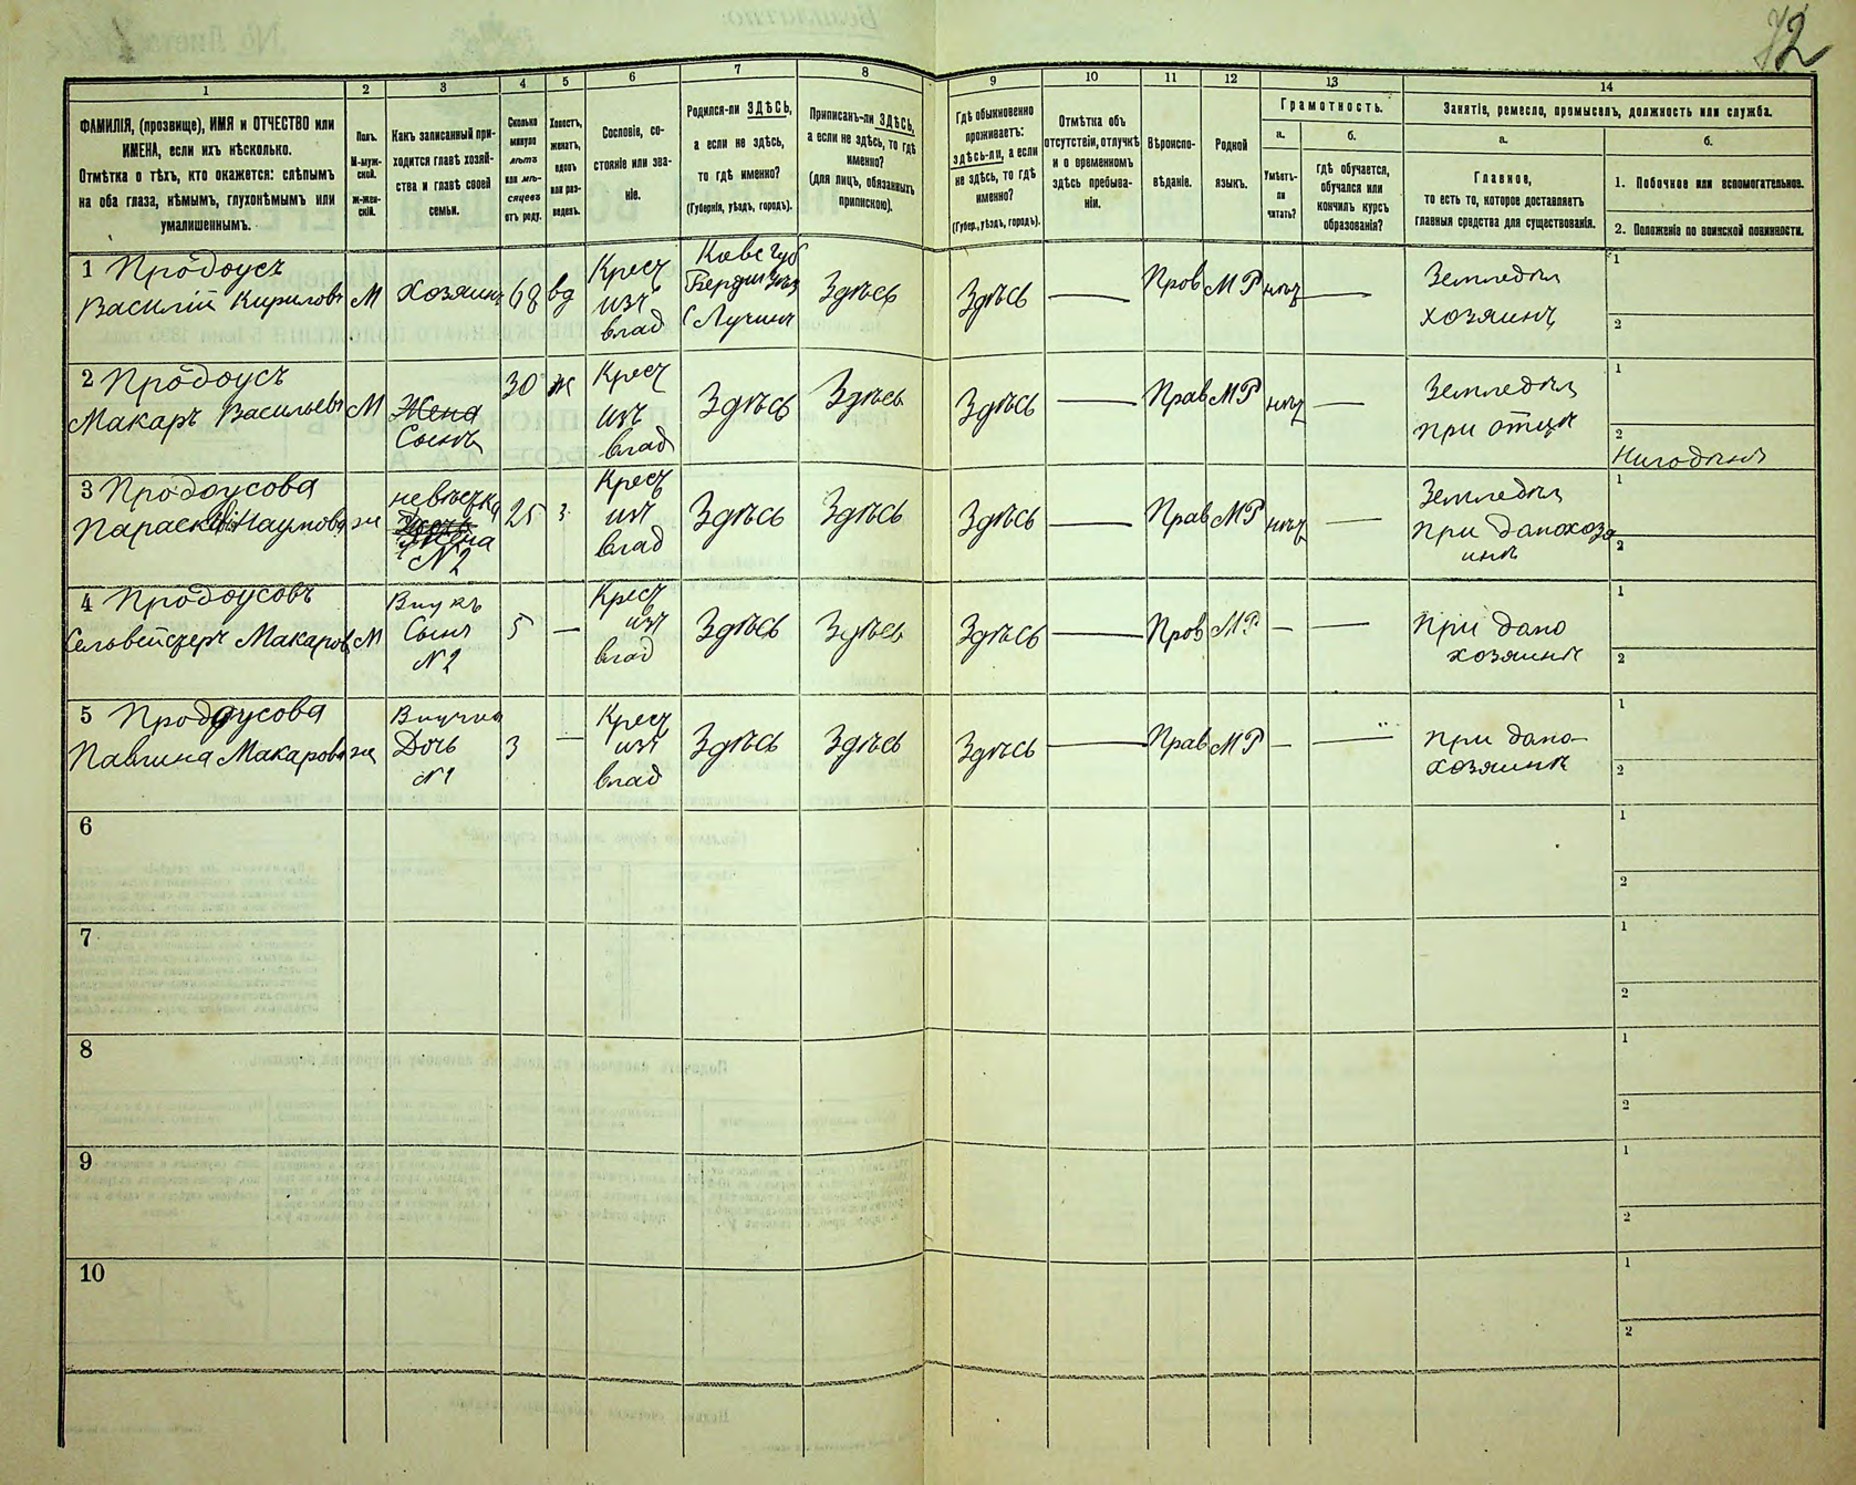 72
1
ФАМИЛІЯ, (прозвище), ИМЯ и ОТЧЕСТВО или
ИМЕНА, если ихъ нѣсколько.
Отмѣтка о тѣхъ, кто окажется: слѣпымъ
на оба глаза, нѣмымъ, глухонѣмымъ или
умалишеннымъ.
2
Полъ.
М-муж-
ской.
Ж-жен-
скій.
3
Какъ записанный при-
ходится главѣ хозяй-
ства и главѣ своей
семьи.
4
Сколько
минуло
лѣтъ
или мѣ-
сяцевъ
отъ роду.
5
Холостъ,
женатъ,
вдовъ
или раз-
веденъ.
6
Сословіе, со-
стояніе или зва-
ніе.
7
Родился-ли ЗДѢСЬ,
а если не здѣсь,
то гдѣ именно?
(Губернія, уѣздъ, городъ).
8
Приписанъ-ли ЗДѢСЬ,
а если не здѣсь, то гдѣ
именно?
(для лицъ, обязанныхъ
припискою).
9
Гдѣ обыкновенно
проживаетъ:
здѣсь-ли, а если
не здѣсь, то гдѣ
именно?
(Губер., уѣздъ, городъ).
10
Отмѣтка объ
отсутствіи, отлучкѣ
и о временномъ
здѣсь пребыва-
ніи.
11
Вѣроиспо-
вѣданіе.
12
Родной
языкъ.
13
Грамотность.
а.
Умѣетъ-
ли
читать?
б.
Гдѣ обучается,
обучался или
кончилъ курсъ
образованія?
14
Занятіе, ремесло, промыселъ, должность или служба.
а.
Главное,
то есть то, которое доставляетъ
главныя средства для существованія.
б.
1. Побочное или вспомогательное.
2. Положеніе по воинской повинности.
1 Продоусъ
Василій Кириловъ
М
хозяинъ
68
вд
Крест
изъ
влад
Киевс губ
Бердич
Здѣсь
Здѣсь
—
Прав
МР
нѣтъ
—
Земледѣл
хозяинъ
1
2
2 Продоусъ
Макаръ Васильевъ
М
Жена
Сынъ
30
ж
Крест
изъ
влад
Здѣсь
Здѣсь
Здѣсь
—
Прав
МР
нѣтъ
—
Земледѣл
при отцѣ
1
2
3 Продоусова
Параскева Наумова
ж
невѣстка
Жена
№2
25
з
Крест
изъ
влад
Здѣсь
Здѣсь
Здѣсь
—
Прав
МР
нѣтъ
—
Земледѣл
при домохозя
инѣ
1
2
4 Продоусовъ
Сельвейстеръ Макаровъ
М
Внукъ
Сынъ
№2
5
—
Крест
изъ
влад
Здѣсь
Здѣсь
Здѣсь
—
Прав
МР
—
—
при домо
хозяинѣ
1
2
5 Продоусова
Павлина Макарова
ж
Внучка
Дочь
№1
3
—
Крест
изъ
влад
Здѣсь
Здѣсь
Здѣсь
—
Прав
МР
—
—
при домо-
хозяинѣ
1
2
6
1
2
7
1
2
8
1
2
9
1
2
10
1
2